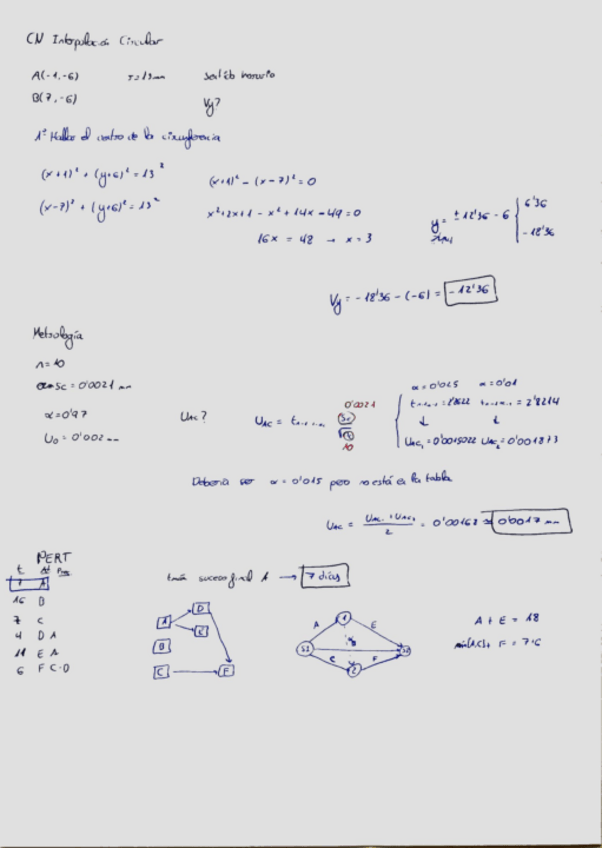 CN Interpolación Circular
A(-1,-6) r=13mm sentido horario
B(7,-6) Vy?
1º Hallar el centro de la circunferencia
(x+1)² + (y+6)² = 13²
(x-7)² + (y+6)² = 13²
(x+1)² - (x-7)² = 0
x²+2x+1 - x² + 14x - 49 = 0
16x = 48 → x = 3
y = ± 12'36 - 6
6'36
-18'36
Vy = -18'36 - (-6) = -12'36
Metrología
n = 10
Sc = 0'0021 mm
α = 0'97 UAC?
U0 = 0'002 mm
UAC = t
0'0021
10
α = 0'025 α = 0'01
= 2'8214
UAC1 = 0'0015022 UAC2 = 0'001873
Debería ser α = 0'015 pero no está en la tabla
UAC = (UAC1 + UAC2)/2 = 0'00168 ≈ 0'0017 mm
PERT
t
7 A
16 B
7 C
4 D A
11 E A
6 F C-D
7 días
A D
B
C F
A 1 E
C 2 F
A + E = 18
F = 7+6